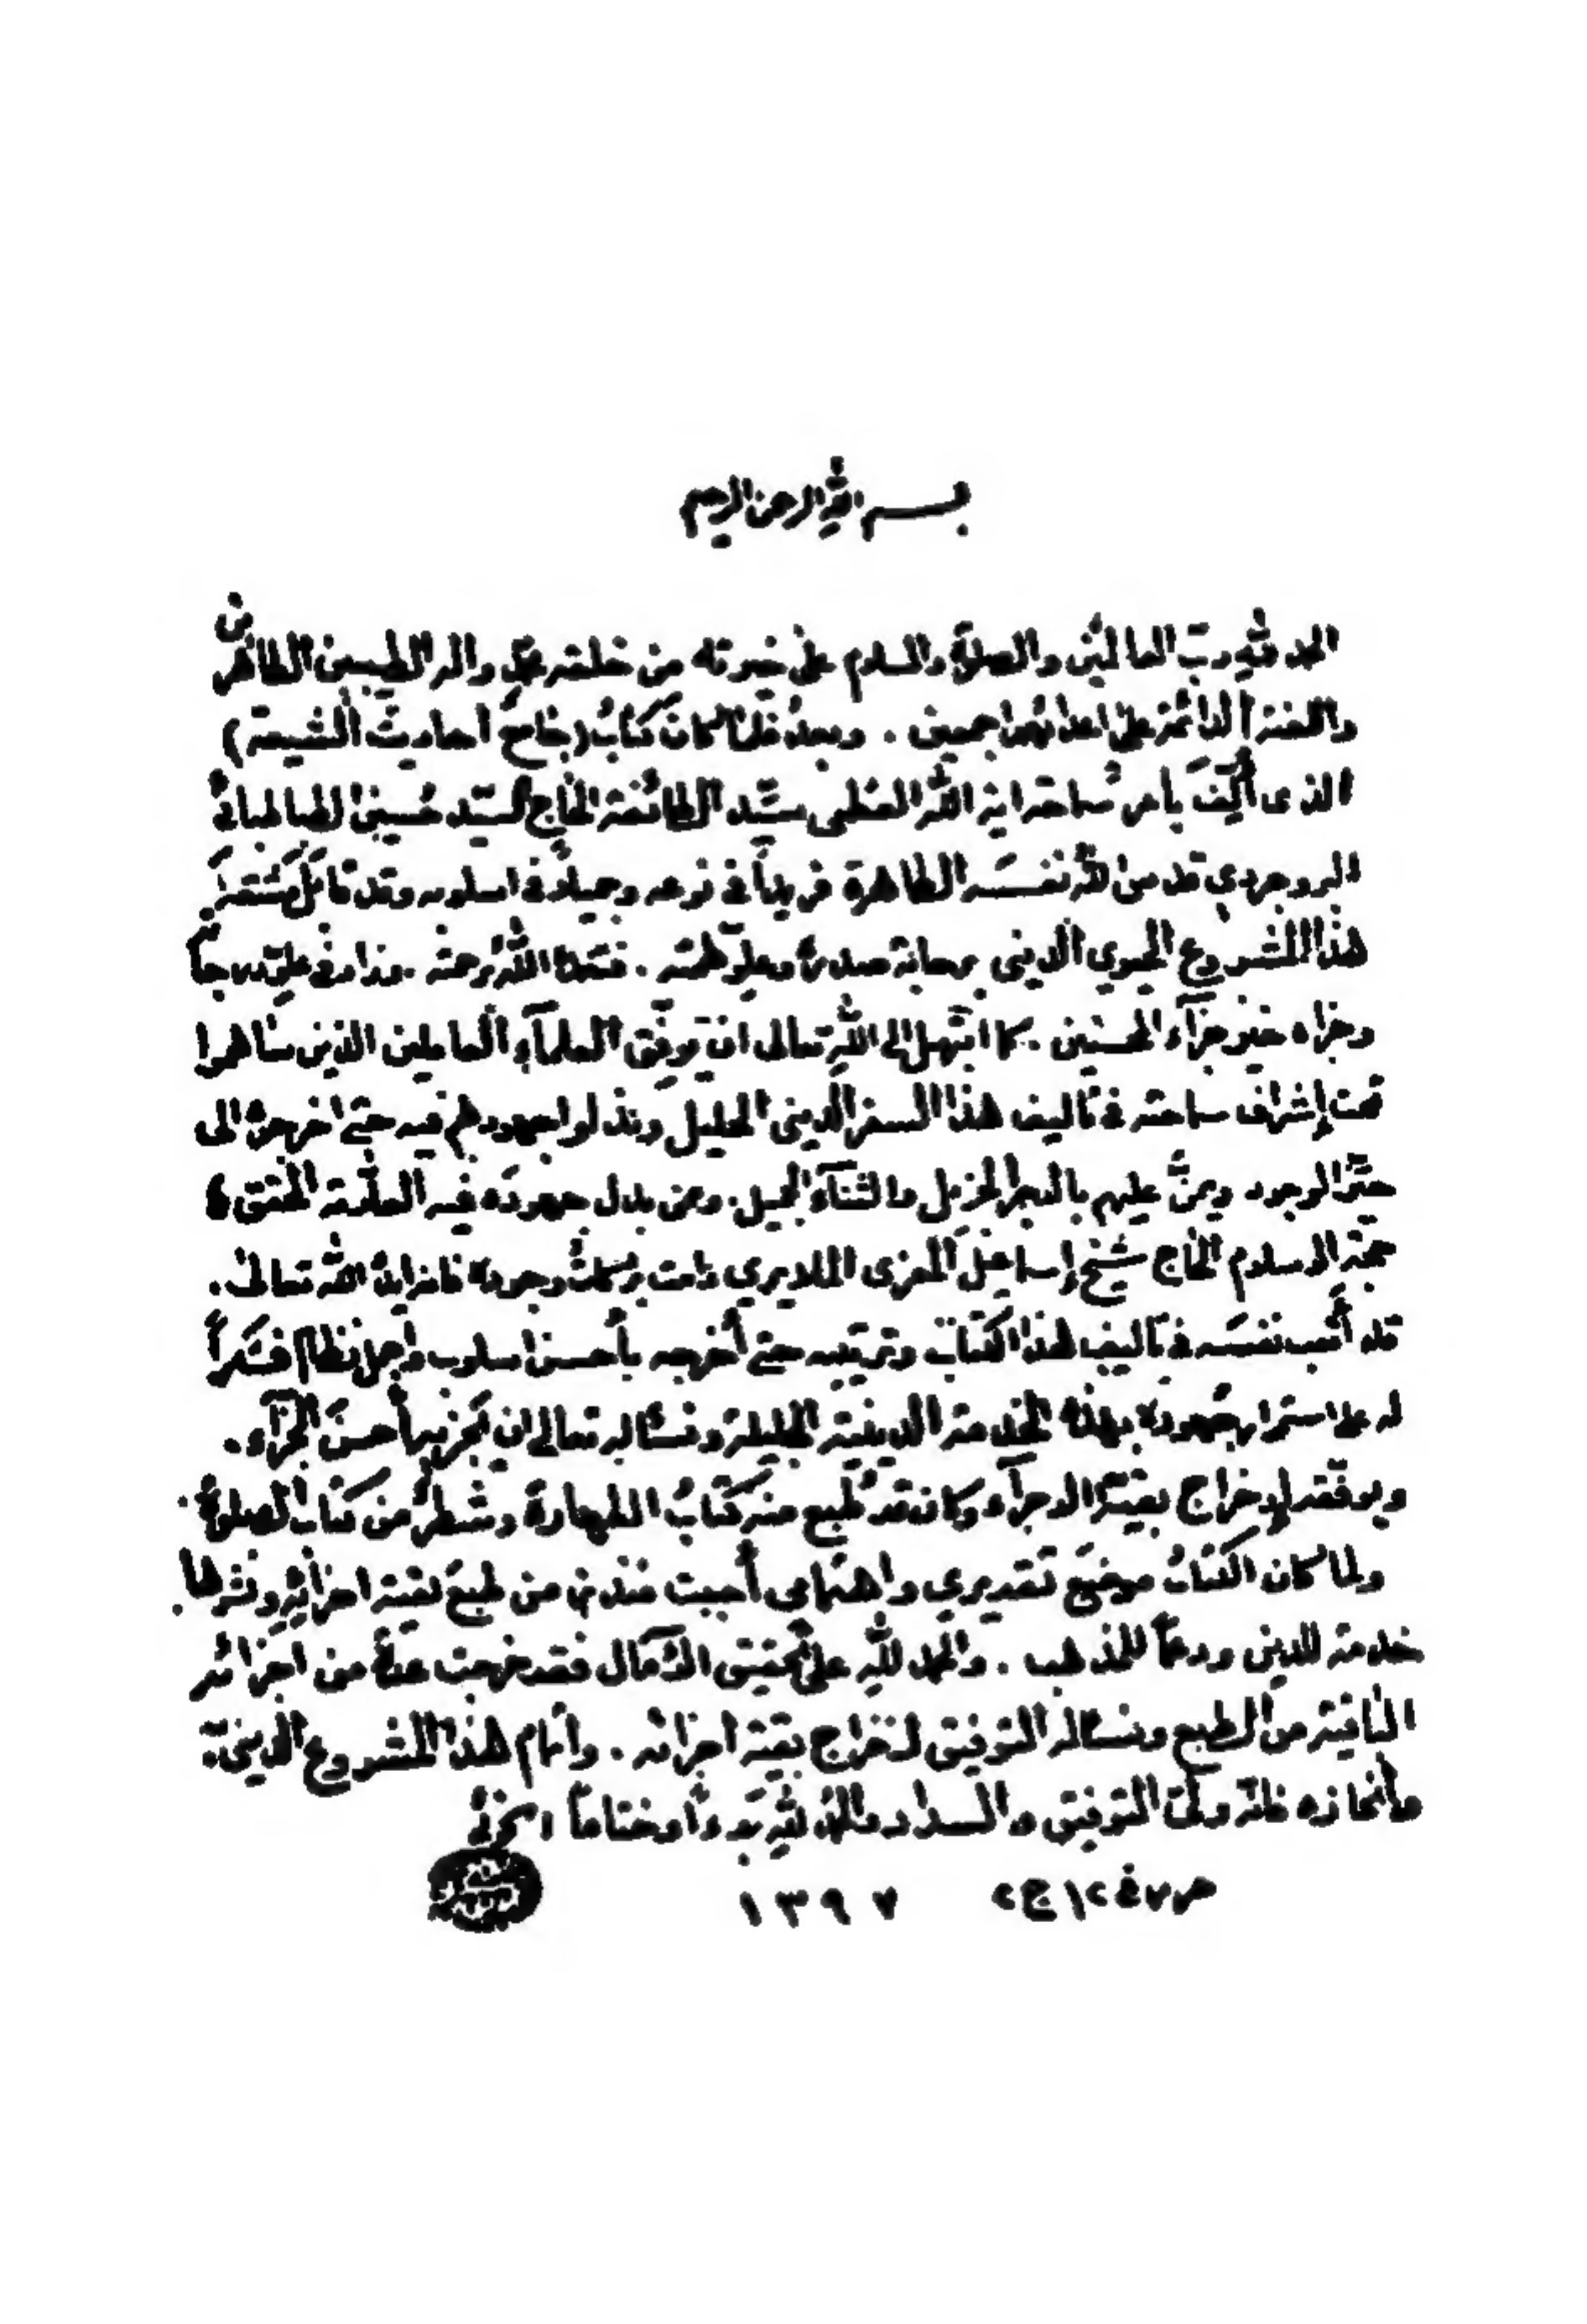 بسم الله الرحمن الرحيم
الحمد لله رب العالمين والصلاة والسلام على خيرته من خلقه محمد واله الطيبين الطاهرين
واللعنة الدائمة على اعدائهم اجمعين . وبعد فلما كان كتابُ (جامع أحاديث الشيعة)
الذى أُلّف بامر سماحة اية الله العظمى سيّد الطائفة الحاج السيّد حسين الطباطبائي
البروجردي قدس الله نفسه الطاهرة فريداً في نوعه وجميلاً في اسلوبه وقد تمّ
هذا المشروع الحيوي الديني برحابة صدره وعلوّ همّته . فتغمّده الله برحمته .
وجزاه خير جزآء المحسنين . كما ابتهل الى اللهِ تعالى ان يوفّق العلمآء العاملين الذين ساهموا
تحت إشراف سماحته في تاليف هذا السفر الديني الجليل وبذلوا جهودهم فيه حتى اخرجوه الى
حيّز الوجود ويمنَّ عليهم بالاجر الجزيل والثنآء الجميل. وممن بذل جهوده فيه العلّامة المحقق
حجّة الاسلام الحاج شيخ إسماعيل المعزى الملايري دامت بركات وجوده فانه ايّده الله تعالى.
قد أتعب نفسه في تاليف هذا الكتاب وترتيبه حتى أخرجه بأحسن اسلوب واجمل نظام فشكراً
له على استمرار جهوده بهذه الخدمة الدينية الجليلة ونسأله تعالى ان يجزيه أحسنَ الجزآء.
ويوفقه لإخراج بقيّة الاجزآء وكان قد طُبع منه كتابُ الطهارة وشطرٌ من كتاب الصلوة.
ولما كان الكتابُ موضعَ تقديري واهتمامي أحببت منذ زمن طبعَ بقية اجزائِه ونشرها.
خدمة للدين ودعماً للمذهب . والحمد للّهِ على تحقيق الآمال فقد خرجت عدّة من اجزائه
الباقية من الطبع ونسأله التوفيق لاخراج بقية اجزائه . وإتمام هذا المشروع الديني.
وإنجازه فانه وليّ التوفيق والسداد والحمد للهِ بدءاً وختاماً الخوئي
في ١٢ ج٢ ١٣٩٧